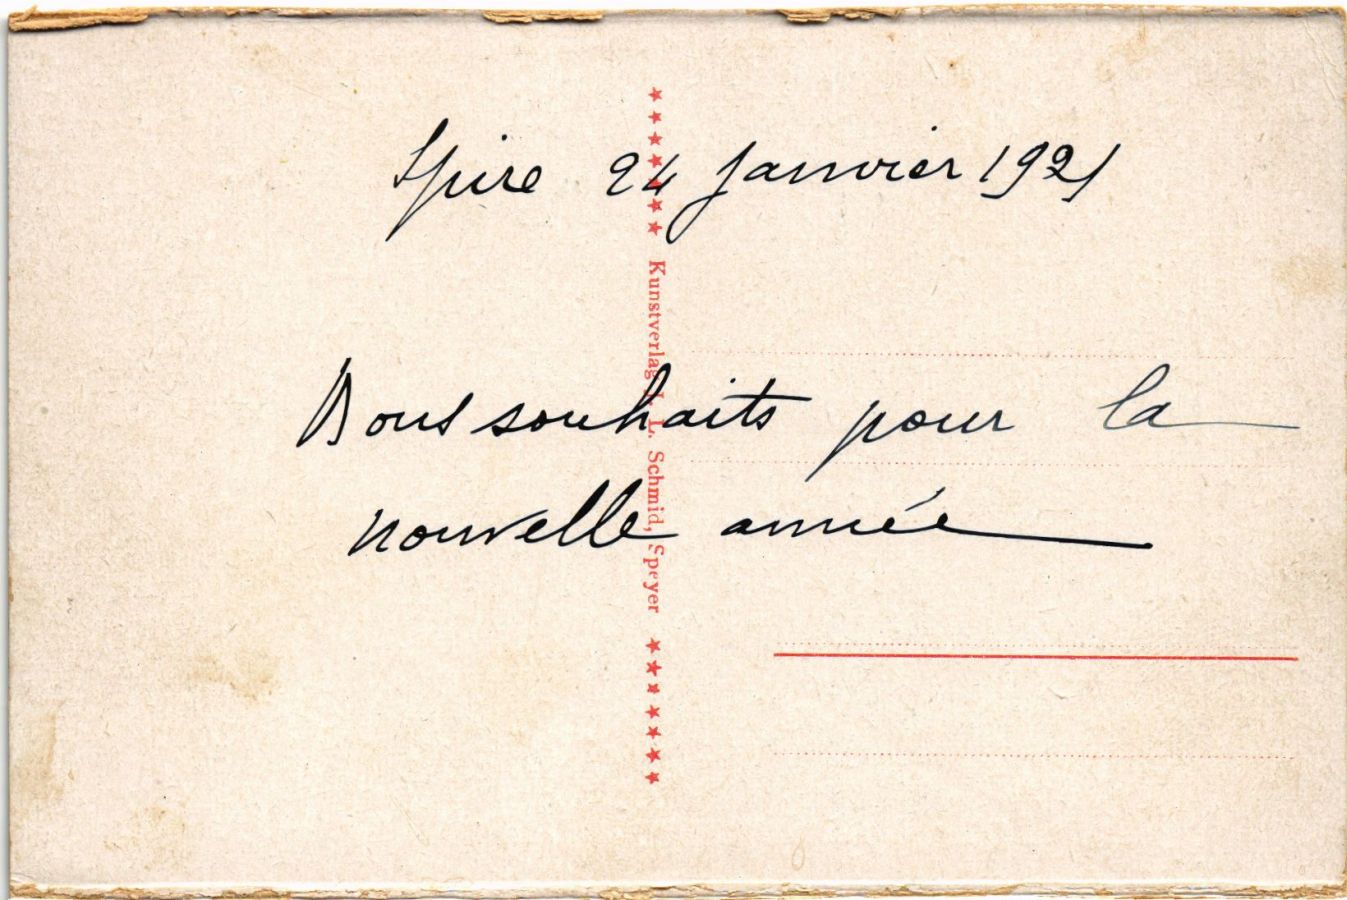 Spire 24 janvier 1921
Bons souhaits pour la
nouvelle année
Kunstverlag J. L. Schmid, Speyer